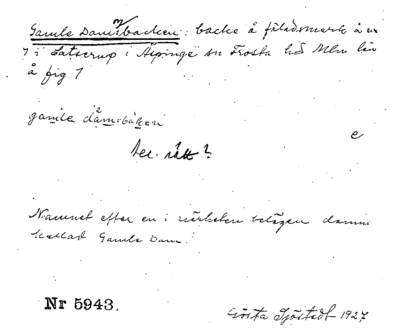 Gamla Dammbacken: backe å fäladsmark å nr
7 i Satserup i Äspinge sn Frosta hd Mlm län
å fig 7
gamle damsbakken
e
Acc. rätt?
Namnet efter en i närheten belägen damm
kallad Gamle Dam.
Nr 5943.
Gösta Sjöstedt 1927